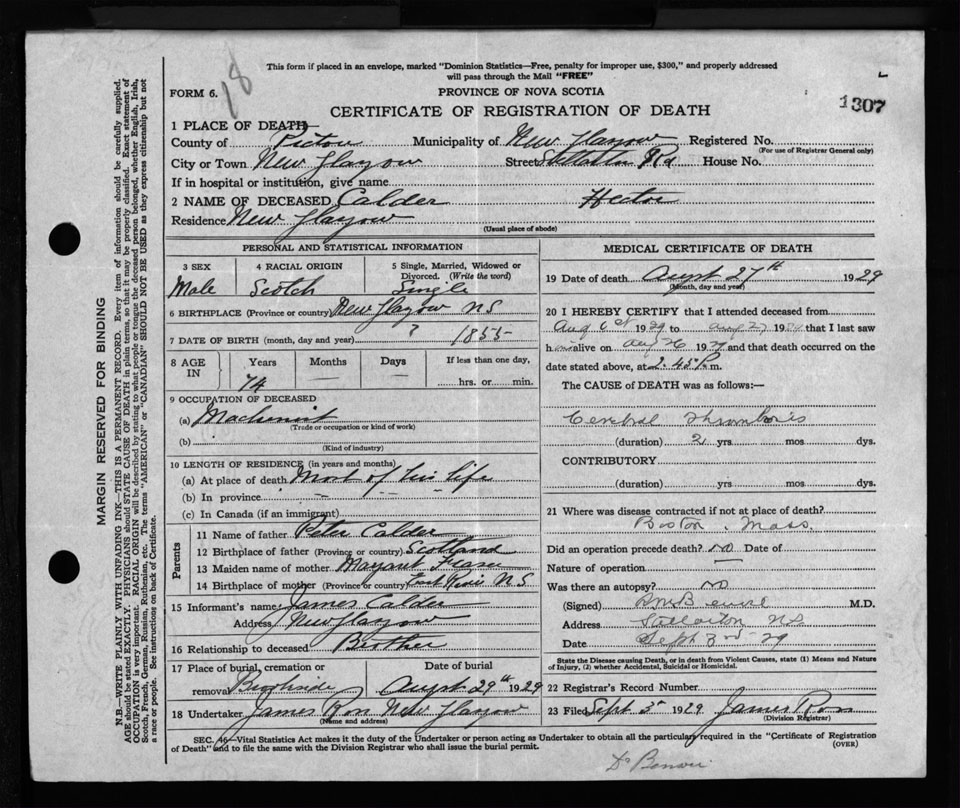 This form if placed in an envelope, marked "Dominion Statistics—Free, penalty for improper use, $300," and properly addressed
will pass through the Mail "FREE"
18
FORM 6.
PROVINCE OF NOVA SCOTIA
1307
CERTIFICATE OF REGISTRATION OF DEATH
1 PLACE OF DEATH—
County of Pictou Municipality of New Glasgow Registered No.
(For use of Registrar General only)
City or Town New Glasgow Street Stellarton Rd House No.
If in hospital or institution, give name
2 NAME OF DECEASED Calder Hector
Residence New Glasgow
(Usual place of abode)
PERSONAL AND STATISTICAL INFORMATION
3 SEX 4 RACIAL ORIGIN 5 Single, Married, Widowed or
Divorced. (Write the word)
Male Scotch Single
6 BIRTHPLACE (Province or country) New Glasgow NS
7 DATE OF BIRTH (month, day and year) ? 1855
8 AGE IN Years Months Days If less than one day,
74 — — hrs. or min.
9 OCCUPATION OF DECEASED
(a) Machinist
(Trade or occupation or kind of work)
(b)
(Kind of industry)
10 LENGTH OF RESIDENCE (in years and months)
(a) At place of death Most of his life
(b) In province " " " "
(c) In Canada (if an immigrant)
Parents
11 Name of father Peter Calder
12 Birthplace of father (Province or country) Scotland
13 Maiden name of mother Margaret Fraser
14 Birthplace of mother (Province or country) N S
15 Informant's name James Calder
Address New Glasgow
16 Relationship to deceased Brother
17 Place of burial, cremation or Date of burial
removal Brookside August 29th 1929
18 Undertaker James Ross New Glasgow
(Name and address)
MEDICAL CERTIFICATE OF DEATH
19 Date of death August 27th 1929
(Month, day and year)
20 I HEREBY CERTIFY that I attended deceased from
Aug 6th 1929 to Aug 27 19 that I last saw
him alive on Aug 26 1929 and that death occurred on the
date stated above, at 2.45 P. m.
The CAUSE of DEATH was as follows:—
Cerebral Thrombosis
(duration) 2 yrs. mos. dys.
CONTRIBUTORY
(duration) yrs. mos. dys.
21 Where was disease contracted if not at place of death?
Boston, Mass.
Did an operation precede death? no Date of
Nature of operation —
Was there an autopsy? no
(Signed) M.D.
Address Stellarton NS
Date Sept 3rd 29
State the Disease causing Death, or in death from Violent Causes, state (1) Means and Nature
of Injury, (2) whether Accidental, Suicidal or Homicidal.
22 Registrar's Record Number
23 Filed Sept 3 1929 James Ross
(Division Registrar)
SEC. 46—Vital Statistics Act makes it the duty of the Undertaker or person acting as Undertaker to obtain all the particulars required in the "Certificate of Registration
of Death" and to file the same with the Division Registrar who shall issue the burial permit.
(OVER)
MARGIN RESERVED FOR BINDING
N.B.—WRITE PLAINLY WITH UNFADING INK—THIS IS A PERMANENT RECORD. Every item of information should be carefully supplied.
AGE should be stated EXACTLY. PHYSICIANS should STATE CAUSE OF DEATH in plain terms, so that it may be properly classified. Exact statement of
OCCUPATION is very important. RACIAL ORIGIN will be described by stating to what people or tongue the deceased person belonged, whether English, Irish,
Scotch, French, German, Russian, Ruthenian, etc. The terms "AMERICAN" or "CANADIAN" SHOULD NOT BE USED as they express citizenship but not
a race or people. See instructions on back of Certificate.